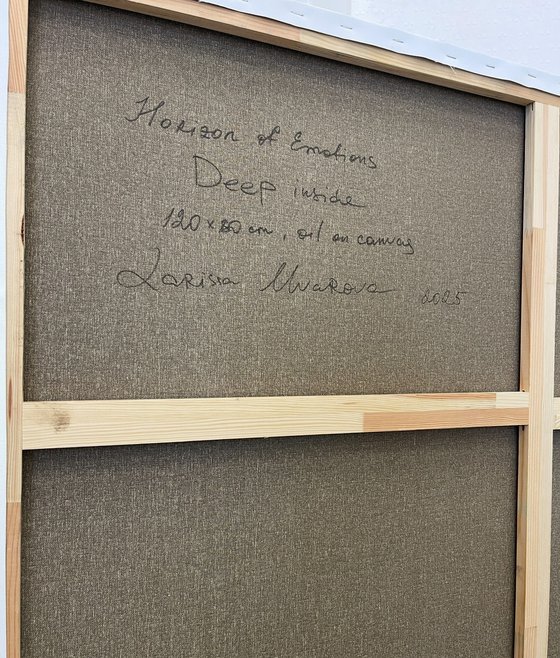 Horizon of Emotions
Deep inside
120x80 cm, oil on canvas
Larissa Uvarova 2025